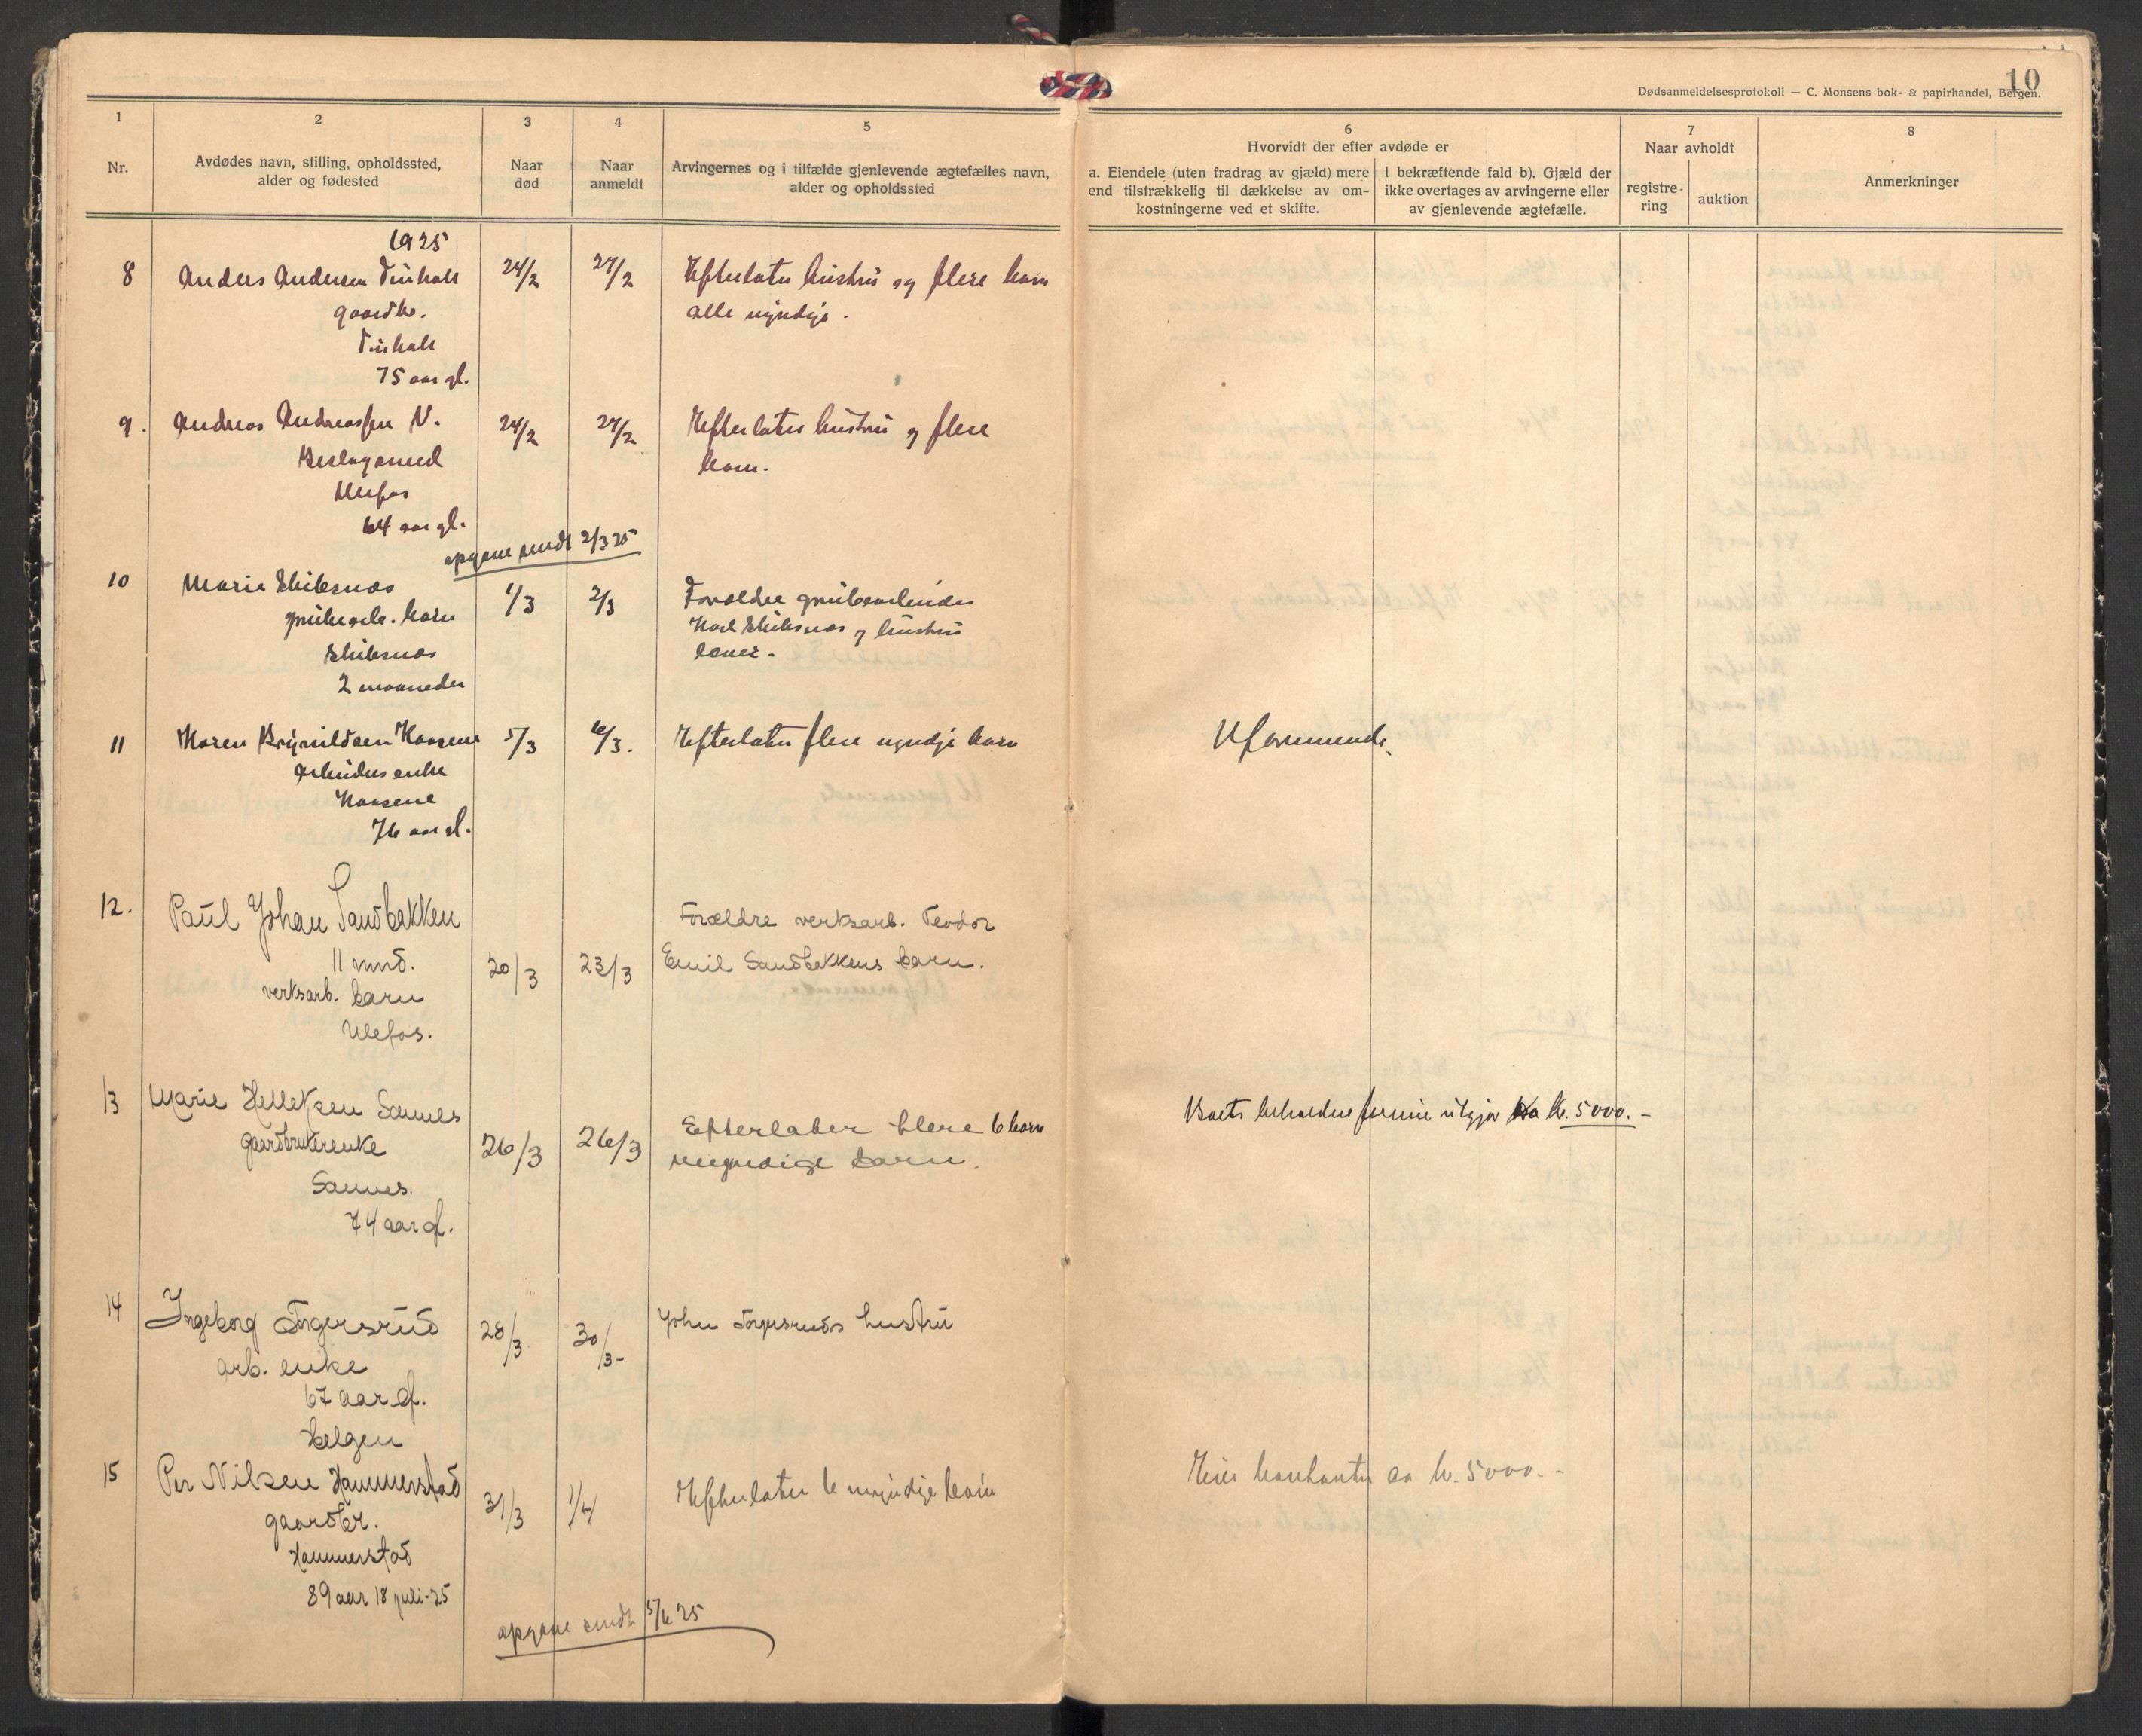 10
Dødsanmeldelsesprotokoll — C. Monsens bok- & papirhandel, Bergen.
1
2
3
4
5
6
7
8
Nr.
Avdødes navn, stilling, opholdssted,
alder og fødested
Naar
død
Naar
anmeldt
Arvingernes og i tilfælde gjenlevende ægtefælles navn,
alder og opholdssted
Hvorvidt der efter avdøde er
a. Eiendele (uten fradrag av gjæld) mere
end tilstrækkelig til dækkelse av om-
kostningerne ved et skifte.
I bekræftende fald b). Gjæld der
ikke overtages av arvingerne eller
av gjenlevende ægtefælle.
Naar avholdt
registre-
ring
auktion
Anmerkninger
1925
8 Anders Andersen 24/2 27/2 Efterlater hustru og flere barn
gaardbr. alle myndige.
75 aar gl.
9. Andreas Andreassen N. 24/2 27/2 Efterlater hustru og flere
barn.
Ulefos
64 aar gl.
opgave sendt 2/3 25
10 Marie 1/3 2/3 Forældre grubearbeider
grubearb. barn Karl og hustru
lever.
2 maaneder
11 Karen Brynildsen Kaasene 5/3 6/3. Efterlater flere myndige barn Uformuende.
arbeider enke
Kaasene
76 aar gl.
12. Paul Johan Sandbakken Forældre verksarb. Teodor
11 mnd. 20/3 23/3 Emil Sandbakkens barn.
verksarb. barn
Ulefos.
13 Marie Helleksen Sannes 26/3 26/3 Efterlater flere 6 barn Boets beholdne formue utgjør ca kr. 5000.-
gaardbrukerenke myndige barn.
Sannes.
74 aar gl.
14 Ingeborg Torgersrud 28/3 30/3- John Torgersruds hustru
arb. enke
67 aar gl.
Helgen
15 Per Nilsen Hammerstad 31/3 1/4 Efterlater 6 myndige barn Eier kontanter ca kr. 5000.-
gaardbr.
Hammerstad
89 aar 18 juli-25
opgave sendt 5/6 25